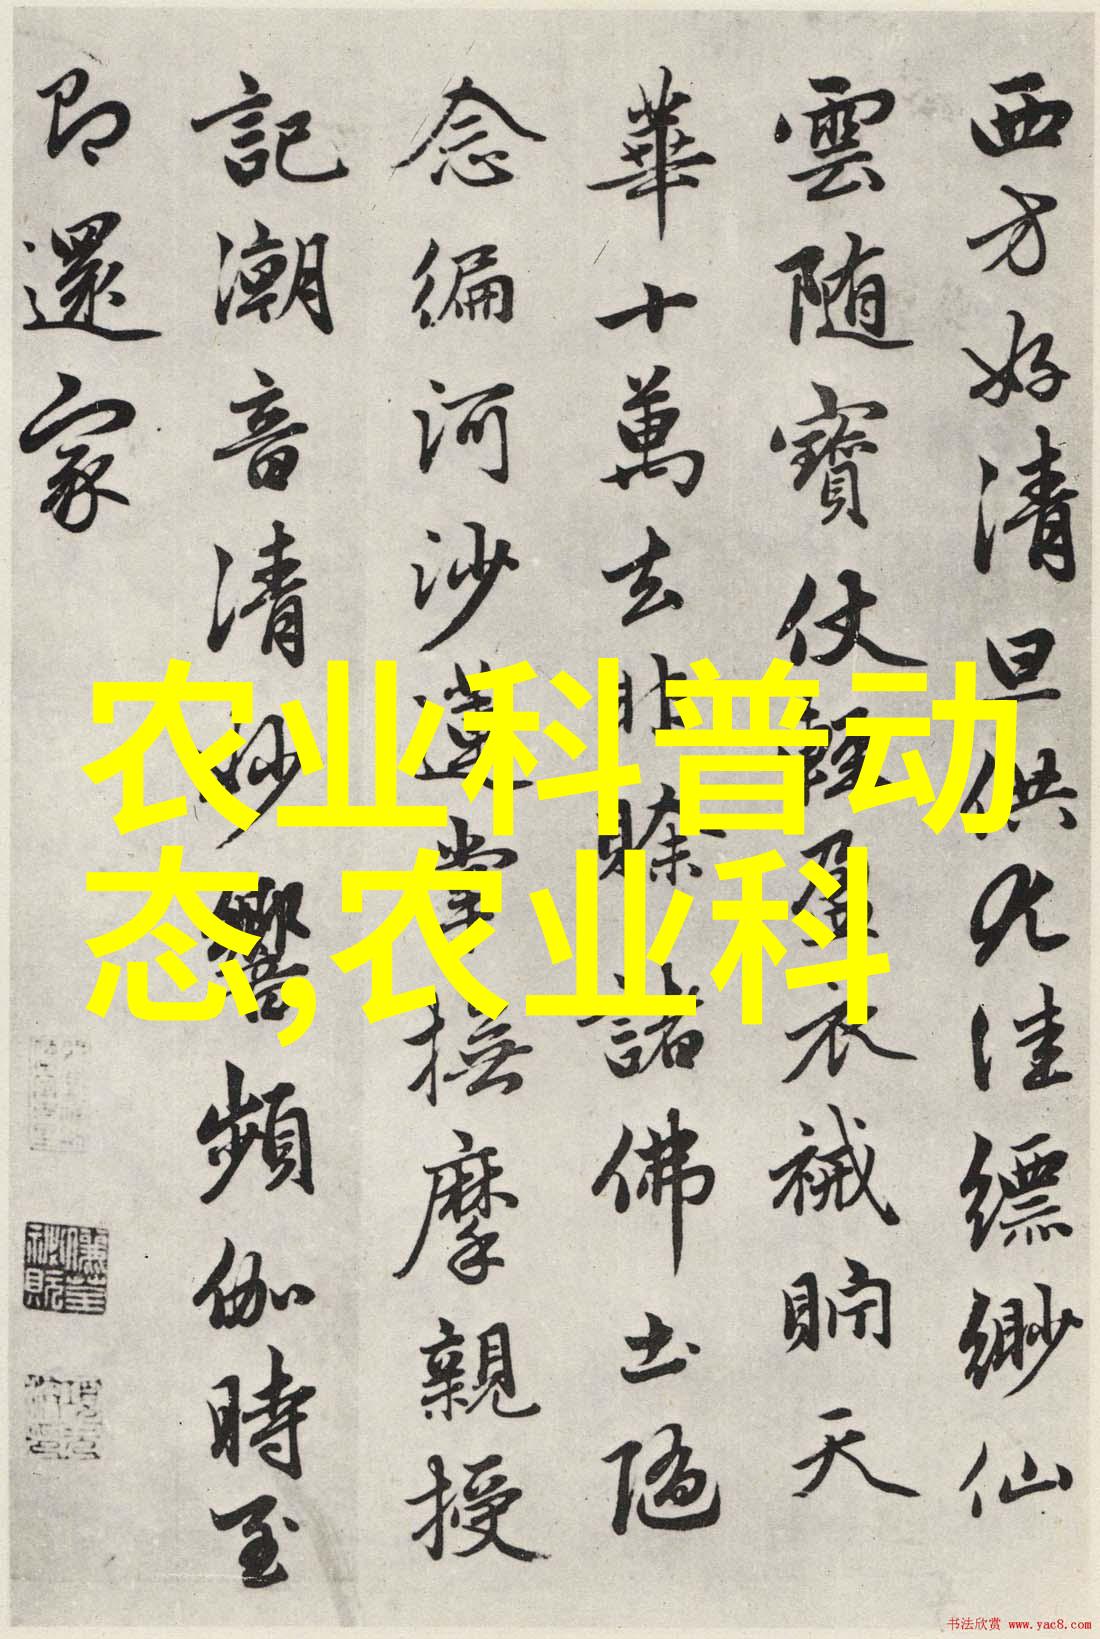 西方好清旦供尤佳縹緲仙
雲随寶仗輕盈衣裓貯天
華十萬去非賒諸佛土隨
念編河沙蓮掌撫摩親授
記潮音清妙響頻伽時至
即還家
农业科普动
态,农业科
书法欣赏 www.yac8.com